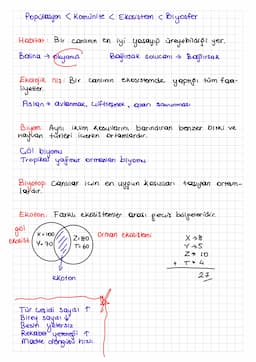 Popülasyon < Komünite < Ekosistem < Biyosfer
Habitat: Bir canlının en iyi yaşayıp üreyebildiği yer.
Balina → okyanus Bağırsak solucanı → Bağırsak
Ekolojik niş: Bir canlının ekosistemde yaptığı tüm faa-
liyetler.
Aslan → avlanmak, çiftleşmek, alan savunması
Biyom: Aynı iklim koşullarını barındıran benzer bitki ve
hayvan türleri içeren ortamlardır.
Göl biyomu
Tropikal yağmur ormanları biyomu
Biyotop: Canlılar için en uygun koşulları taşıyan ortam-
lardır.
Ekoton: Farklı ekosistemler arası geçiş bölgeleridir.
göl
ekosist
X=100
Y=70
Z=80
T=60
Orman ekosistemi
ekoton
X → 8
Y → 5
Z → 10
+ T → 4
27
Tür çeşidi sayısı ↑
Birey sayısı ↓
Besin yetersiz
Rekabet yeteneği ↑
Madde döngüsü hızlı